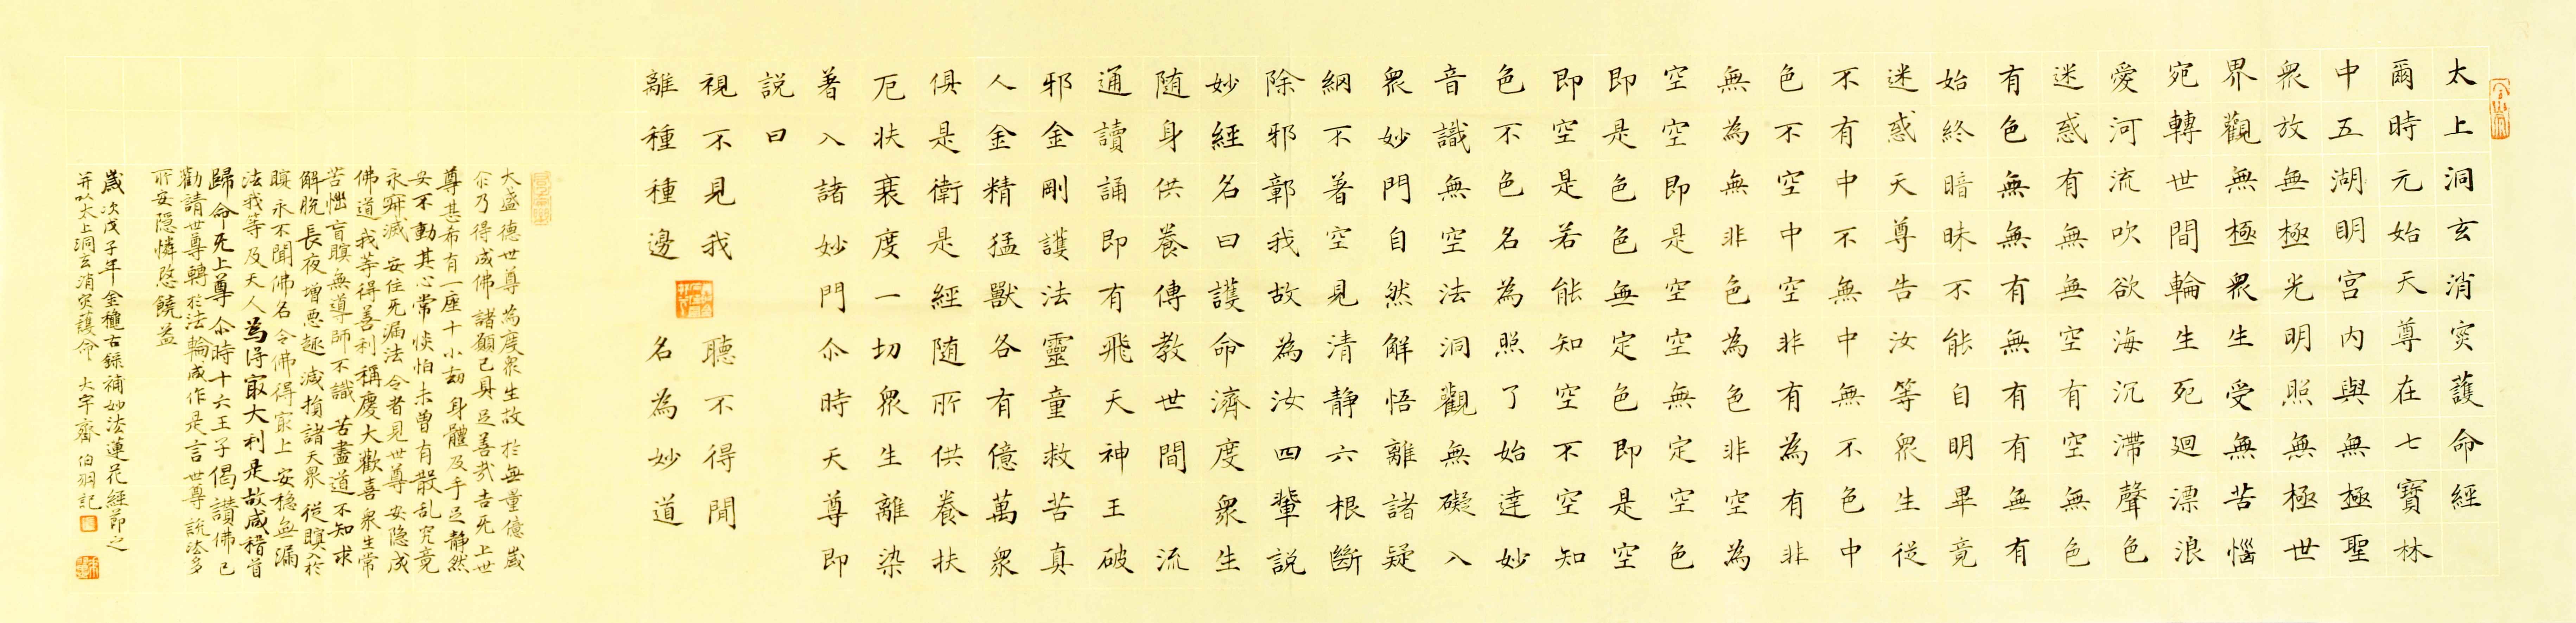 太上洞玄消灾護命經
爾時元始天尊在七寶林
中五湖明宮內與無極聖
衆放無極光明照無極世
界觀無極衆生受無苦惱
宛轉世間輪生死迴漂浪
愛河流吹欲海沉滯聲色
迷惑有無無空有空無色
有色無無有無有有無有
始終暗昧不能自明畢竟
迷惑天尊告汝等衆生従
不有中不無中無不色中
色不空中空非有為有非
無為無非色為色非空為
空空即是空空無定空色
即是色色無定色即是空
即空是若能知空不空知
色不色名為照了始達妙
音識無空法洞觀無礙入
衆妙門自然解悟離諸疑
網不著空見清静六根斷
除邪鄣我故為汝四輩説
妙經名曰護命濟度衆生
随身供養傳教世間流
通讀誦即有飛天神王破
邪金剛護法靈童救苦真
人金精猛獸各有億萬衆
俱是衛是經随所供養扶
厄扶衰度一切衆生離染
著入諸妙門尒時天尊即
説曰
視不見我聽不得聞
離種種邊名為妙道
大蓋德世尊為度衆生故於無量億歲
尒乃得成佛諸願已具足善哉吉无上世
尊甚希有一座十小劫身體及手足静然
安不動其心常惔怕未曾有散乱究竟
永寂滅安住无漏法令者見世尊安隐成
佛道我等得善利稱慶大歡喜衆生常
苦惱盲瞑無導師不識苦盡道不知求
解脱長夜增悪趣減損諸天衆従瞑入於
瞑永不聞佛名令佛得㝡上安穏無漏
法我等及天人為得㝡大利是故咸稽首
歸命无上尊尒時十六王子偈讃佛已
勸請世尊轉於法輪咸作是言世尊説法多
所安隐憐愍饒益
歲次戊子年金穐古録補妙法蓮花經節之
并以太上洞玄消灾護命大字齋伯羽記